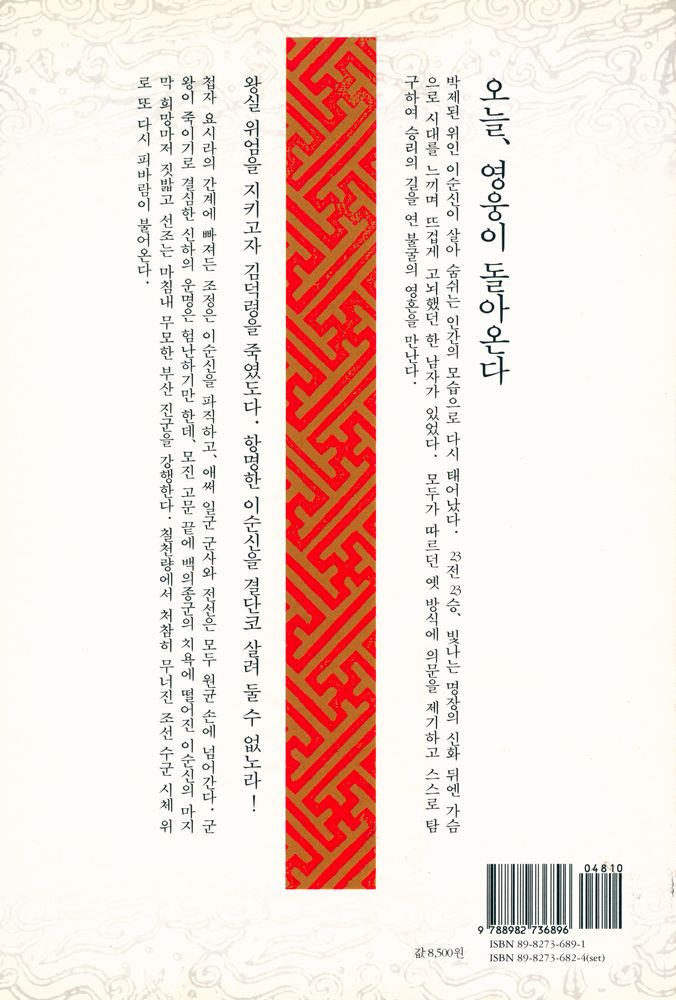 오늘, 영웅이 돌아온다
박제된 위인 이순신이 살아 숨쉬는 인간의 모습으로 다시 태어났다. 23전 23승, 빛나는 명장의 신화 뒤엔 가슴
으로 시대를 느끼며 뜨겁게 고뇌했던 한 남자가 있었다. 모두가 따르던 옛 방식에 의문을 제기하고 스스로 탐
구하여 승리의 길을 연 불굴의 영혼을 만난다.
왕실 위엄을 지키고자 김덕령을 죽였도다. 항명한 이순신을 결단코 살려 둘 수 없노라!
첩자 요시라의 간계에 빠져든 조정은 이순신을 파직하고, 애써 일군 군사와 전선은 모두 원균 손에 넘어간다. 군
왕이 죽이기로 결심한 신하의 운명은 험난하기만 한데, 모진 고문 끝에 백의종군의 치욕에 떨어진 이순신의 마지
막 희망마저 짓밟고 선조는 마침내 무모한 부산 진군을 강행한다. 칠천량에서 처참히 무너진 조선 수군 시체 위
로 또 다시 피바람이 불어온다.
04810
9 788982 736896
ISBN 89-8273-689-1
ISBN 89-8273-682-4(set)
값 8,500원